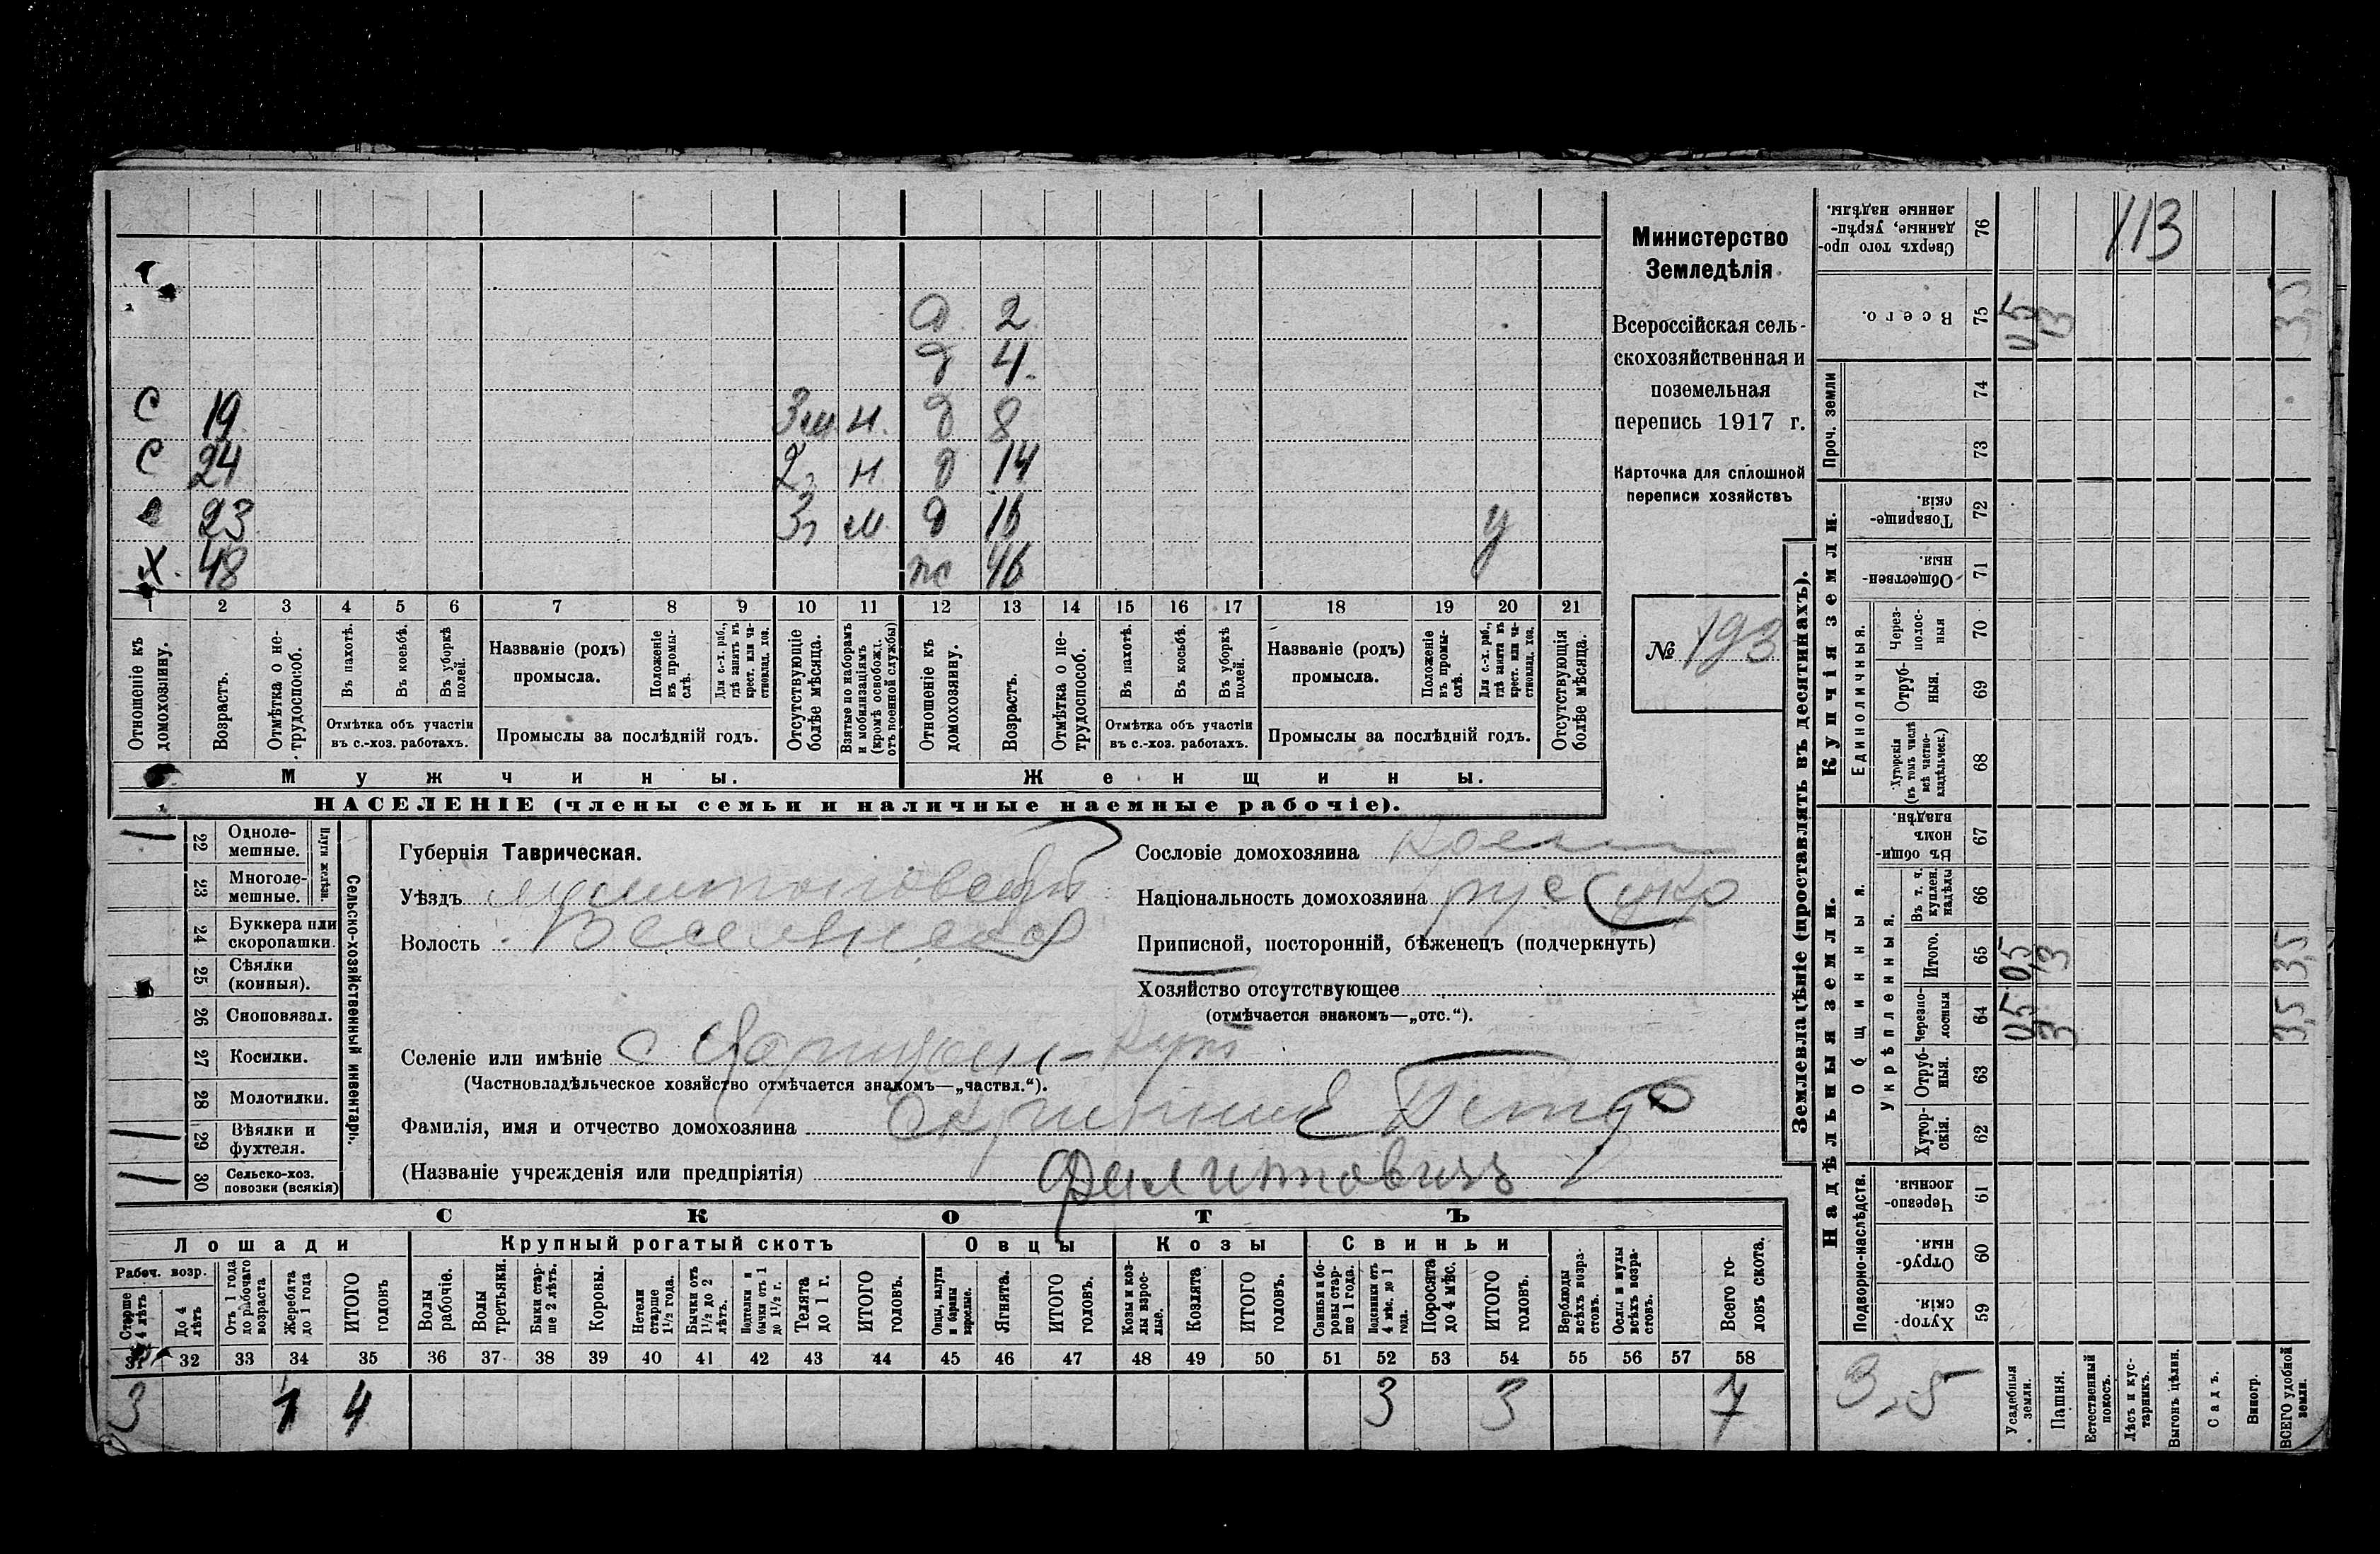 С 19 3 м н.
С 24 2 г н.
с 23 3 г м.
Х. 48
д. 2
д 4.
д 8
д 14
д 16
ж 46 у
1 2 3 4 5 6 7 8 9 10 11 12 13 14 15 16 17 18 19 20 21
Отношеніе къ домохозяину.
Возрастъ.
Отмѣтка о нетрудоспособ.
Въ пахотѣ.
Въ косьбѣ.
Въ уборкѣ полей.
Отмѣтка объ участіи въ с.-хоз. работахъ.
Названіе (родъ) промысла.
Положеніе въ промыслѣ.
Для с.-х. раб., гдѣ занятъ въ крест. или частновлад. хоз.
Промыслы за послѣдній годъ.
Отсутствующіе болѣе мѣсяца.
Взятые по наборамъ и мобилизаціямъ (кромѣ освобожд. отъ военной службы)
Отношеніе къ домохозяину.
Возрастъ.
Отмѣтка о нетрудоспособ.
Въ пахотѣ.
Въ косьбѣ.
Въ уборкѣ полей.
Отмѣтка объ участіи въ с.-хоз. работахъ.
Названіе (родъ) промысла.
Положеніе въ промыслѣ.
Для с.-х. раб., гдѣ занята въ крест. или частновлад. хоз.
Промыслы за послѣдній годъ.
Отсутствующія болѣе мѣсяца.
Мужчины.
Женщины.
НАСЕЛЕНІЕ (члены семьи и наличные наемные рабочіе).
Министерство
Земледѣлія
Всероссійская сель-
скохозяйственная и
поземельная
перепись 1917 г.
Карточка для сплошной
переписи хозяйствъ
№ 193
22 Одноле-мешные.
23 Многоле-мешные.
Плуги желѣзн.
24 Буккера или скоропашки.
25 Сѣялки (конныя).
26 Сноповязал.
27 Косилки.
28 Молотилки.
29 Вѣялки и фухтеля.
30 Сельско-хоз. повозки (всякія)
Сельско-хозяйственный инвентарь.
Губернія Таврическая.
Уѣздъ
Волость
Селеніе или имѣніе с
(Частновладѣльческое хозяйство отмѣчается знакомъ—„частвл.“).
Фамилія, имя и отчество домохозяина Петр
(Названіе учрежденія или предпріятія) Филиппович
Сословіе домохозяина
Національность домохозяина рус укр
Приписной, посторонній, бѣженецъ (подчеркнуть)
Хозяйство отсутствующее
(отмѣчается знакомъ—„отс.“).
СКОТЪ
Лошади
Крупный рогатый скотъ
Овцы
Козы
Свиньи
Рабоч. возр.
Старше 4 лѣтъ
До 4 лѣтъ
Отъ 1 года до рабочаго возраста
Жеребята до 1 года
ИТОГО головъ
Волы рабочіе.
Волы третьяки.
Быки старше 2 лѣтъ.
Коровы.
Нетели старше 1½ года.
Бычки отъ 1½ до 2 лѣтъ.
Подтелки и бычки отъ 1 до 1½ г.
Телята до 1 г.
ИТОГО головъ.
Овцы, валухи и бараны взрослые.
Ягнята.
ИТОГО головъ.
Козы и козлы взрослые.
Козлята
ИТОГО головъ.
Свиньи и боровы старше 1 года.
Подсвинки отъ 4 мѣс. до 1 года.
Поросята до 4 мѣс.
ИТОГО головъ.
Верблюды всѣхъ возрастовъ.
Ослы и мулы всѣхъ возрастовъ.
Всего головъ скота.
31 32 33 34 35 36 37 38 39 40 41 42 43 44 45 46 47 48 49 50 51 52 53 54 55 56 57 58
3 1 4 3 3 7
Землевладѣніе (проставлять въ десятинахъ).
Купчія земли.
Надѣльныя земли.
76 Сверхъ того проданные, укрѣпленные надѣлы.
113
75 Всего. 05 3 3,5
Проч. земли
74
73
72 Товарищескія.
71 Общественныя.
Единоличныя.
70 Черезполосныя
69 Отрубныя.
68 Хуторскія (въ томъ числѣ всѣ частновладѣльческ.)
67 Въ общинномъ владѣн.
Общинныя.
Укрѣпленныя.
66 Въ т. ч. куплен. надѣлы
65 Итого. 05 3 3,5
64 Черезполосныя 05 3 3,5
63 Отрубныя.
62 Хуторскія.
Подворно-наслѣдств.
61 Черезполосныя.
60 Отрубныя.
59 Хуторскія.
3,5
Усадебныя земли.
Пашня.
Естественный покосъ.
Лѣсъ и кустарникъ.
Выгонъ цѣлин.
Садъ.
Виногр.
ВСЕГО удобной земли.